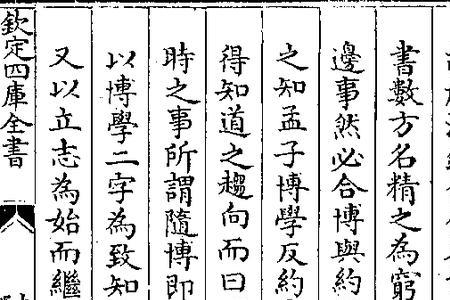 書數方名精之為窮
邊事然必合博與約
之知孟子博學反約
得知道之趨向而曰
時之事所謂隨博即
以博學二字為致知
又以立志為始而繼
欽定四庫全書